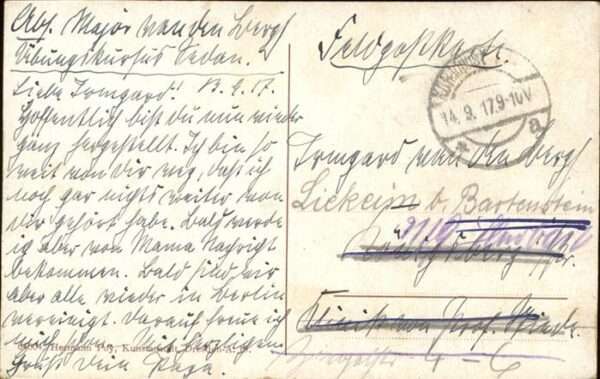 Abs. Major van den Bergh
Übungskursus Sedan.
Liebe Irmgard! 13.9.17.
Hoffentlich bist du nun wieder
ganz hergestellt. Ich bin so
weit von dir weg, daß ich
noch gar nichts weiter von
dir gehört habe. Bald werde
ich aber von Mama Nachricht
bekommen. Bald sind wir
aber alle wieder in Berlin
vereinigt. Darauf freue ich
mich schon. Mit herzlichem
Gruß Dein Papa.
Feldpostkarte.
14.9.17.9-10V
a
Irmgard van den Bergh
Liekeim b. Bartenstein
Königsberg i/Pr.
Klinik von Prof.
Hermann Poy, Dresden-A.